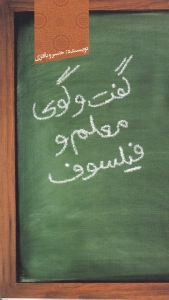 نویسنده: خسرو باقری
گفت و گوی
معلم و
فیلسوف